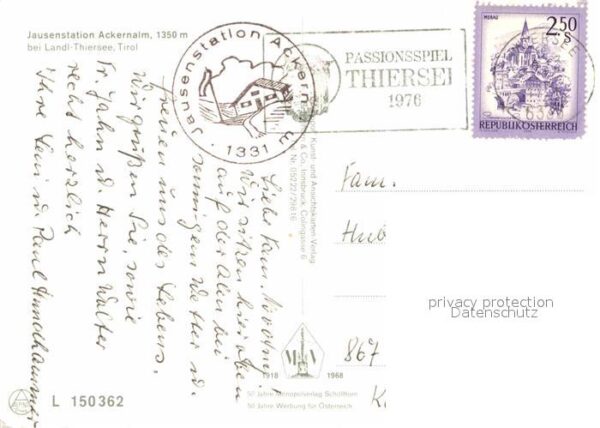 Jausenstation Ackernalm, 1350 m
bei Landl-Thiersee, Tirol
Jausenstation Ackern
· 1331 m ·
PASSIONSSPIEL
THIERSEE
1976
MURAU
2.50
S
REPUBLIK ÖSTERREICH
THIERSEE
Liebe Fam.
Wir sitzen hier oben
auf der Alm bei
sonnigem Wetter u.
freuen uns des Lebens.
Wir grüßen Sie, sowie
Fr. Jahn u. Herrn Walter
recht herzlich
Ihre u. Paul
Kunst- und Ansichtskarten Verlag
& Co., Innsbruck, Colingasse 6
Nr. 05222/29816
Fam.
Hub
867
K
privacy protection
Datenschutz
1918
1968
50 Jahre Monopolverlag Schöllhorn
50 Jahre Werbung für Österreich
L 150362